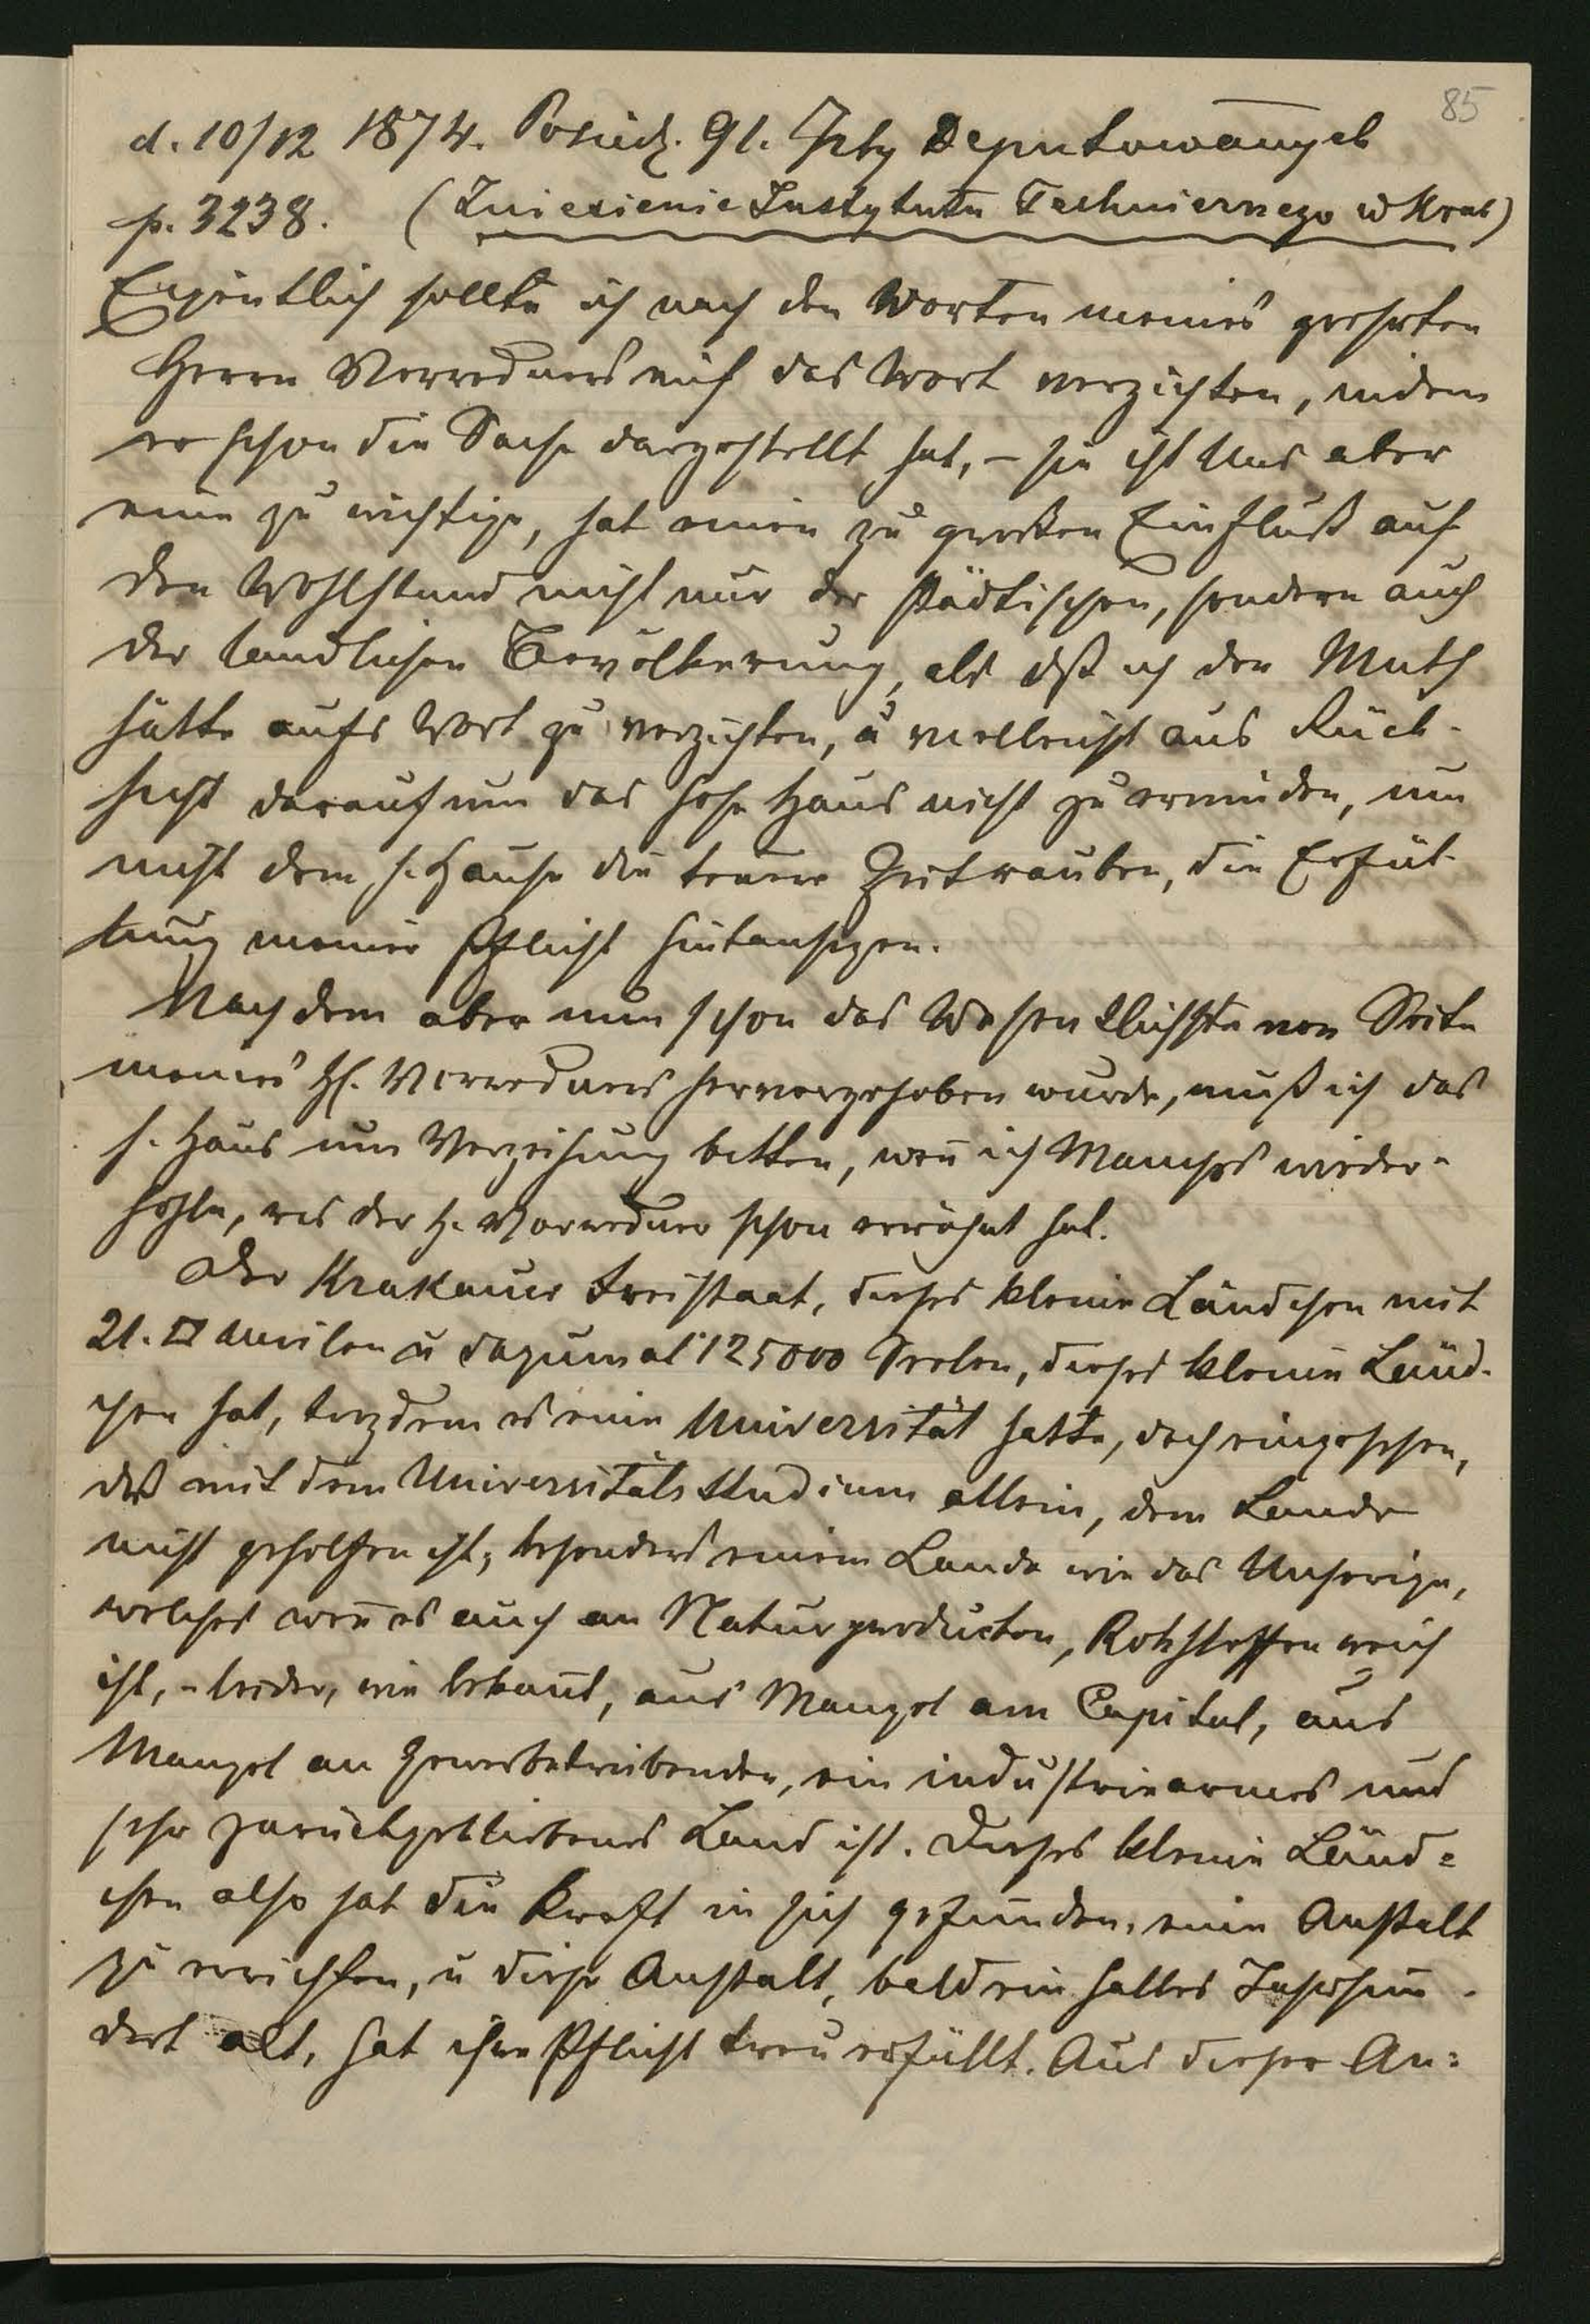 85
d. 10/12 1874. Posiedz. 91. Izby Deputowanych
p. 3238. (Zniesienie Instytutu Technicznego w Krak)
Eigentlich sollte ich nach den Worten meines geehrten
Herrn Vorredners auf das Wort verzichten, indem
er schon die Sache dargestellt hat, – sie ist Uns aber
eine zu wichtige, hat einen zu großen Einfluß auf
den Wohlstand nicht nur der städtischen, sondern auch
der landlichen Bevölkerung, als dß ich den Muth
hätte aufs Wort zu verzichten, u vielleicht aus Rück-
sicht darauf um das hohe Haus nicht zu ermüden, um
nicht dem h. Hause die teuere Zeit rauben, die Erfül-
lung meiner Pflicht hintansezen.
Nachdem aber nun schon das Wesentlichste von Seite
meines H. Vorredners hervorgehoben wurde, muß ich das
h. Haus um Verzeihung bitten, weñ ich Manches wieder-
hohle, was der H. Vorredner schon erwähnt hat.
Der Krakauer Freistaat, dieses kleine Ländchen mit
21. □ Meilen u dazumal 125000 Seelen, dieses kleine Länd-
chen hat, trozdem es eine Universität hatte, doch eingesehen,
daß mit dem Universitäts studium allein, dem Lande
nicht geholfen ist, besonders einem Lande wie das Unserige,
welches weñ es auch an Naturproducten, Rohstoffen reich
ist, – leider, wie bekañt, aus Mangel am Capital, aus
Mangel an Gewerbetreibenden, ein industriearmes und
sehr zurückgebliebenes Land ist. Dieses kleine Länd=
chen also hat die Kraft in sich gefunden, eine Anstalt
zu errichten, u diese Anstalt, bald ein halbes Jahrhun-
dert alt, hat ihre Pflicht treu erfüllt. Aus dieser An=